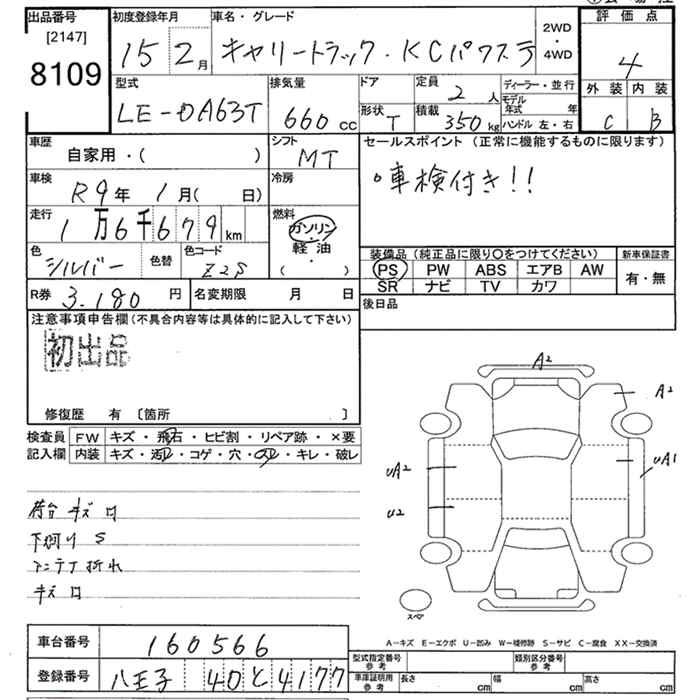 出品番号
[2147]
8109
初度登録年月
15 2月
車名・グレード
キャリートラック・KCパワステ
2WD
・
4WD
評価点
4
外装 内装
C B
型式
LE-DA63T
排気量
660 cc
ドア
形状
T
定員
2 人
積載
350 kg
ディーラー・並行
モデル年式 年
ハンドル 左・右
車歴
自家用・( )
シフト
MT
セールスポイント (正常に機能するものに限ります)
・車検付き!!
車検
R9年 1月( 日)
冷房
走行
1万6千679km
燃料
ガソリン
・
軽油
・
( )
色
シルバー
色替
色コード
Z2S
装備品 (純正品に限り○をつけてください)
PS PW ABS エアB AW
SR ナビ TV カワ
新車保証書
有・無
R券 3.180 円
名変期限 月 日
後日品
注意事項申告欄(不具合内容等は具体的に記入して下さい)
初出品
修復歴 有 〔箇所 〕
検査員記入欄
FW キズ・飛石・ヒビ割・リペア跡・×要
内装 キズ・汚レ・コゲ・穴・スレ・キレ・破レ
荷台 キズ 凹
下廻り S
アンテナ折れ
キズ 凹
A2
A2
UA2
UA1
U2
スペア
A-キズ E-エクボ U-凹み W-補修跡 S-サビ C-腐食 XX-交換済
車台番号 160566
登録番号 八王子 40 と 4177
型式指定番号 参考
類別区分番号 参考
車庫証明用 参考 長さ cm 幅 cm 高さ cm